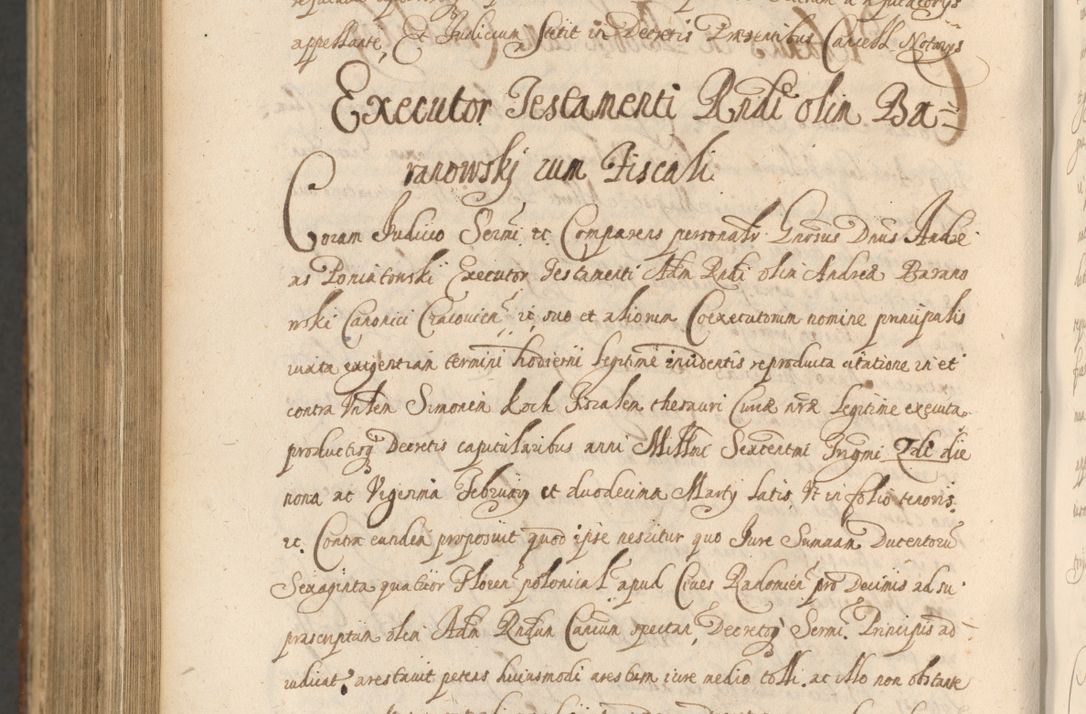 appellante, Et Judicium stetit in Decretis Præsentibus Cancell. Notarijs
Executor Testamenti Rndi olim Ba=
ranowskj cum Fiscali
Coram Judicio Sermi etc Comparens personalr Gnrosus Dnus Andre
as Poniatowski Executor Testamenti Adm Rndi olim Andreæ Barano
wski Canonici Cracovien. etc suo et aliorum Coexecutorum nomine principalis
iuxta exigentiam termini hodierni legitime incidentis reproducta citatione in et
contra Simonem Koch fiscalem thesauri Curiæ nræ legitime executa
productisq Decretis capitularibus anni Millmi Sexcentmi die
nona ac Vigesima Februarij et duodecima Martij latis Vt in folio tenoris.
etc. Contra eundem proposuit quod ipse nescitur quo Jure Summam Ducentorum
Sexaginta quatuor Floren polonical. apud Cives Radomien pro Decimis ad su
prascriptum olim Adm Rndum Cancum spectan. Decretoq Sermi. Principis ad
iudicat. arestavit petens huiusmodi arestum iure medio tolli. ac illo non obstante